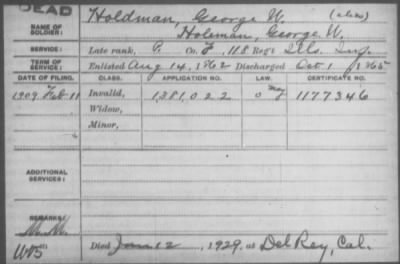 DEAD
NAME OF SOLDIER: Holdman, George W. (alias)
Holeman, George W.
SERVICE: Late rank, P. Co. F, 118 Reg't Ills. Inf.
TERM OF SERVICE: Enlisted Aug 14, 1862 Discharged Oct 1 1865
DATE OF FILING. CLASS. APPLICATION NO. LAW. CERTIFICATE NO.
1909 Feb 11 Invalid, 1381022 O May 1177346
Widow,
Minor,
ADDITIONAL SERVICES:
REMARKS:
M. M.
Died Jan 12, 1929, at Del Rey, Cal.